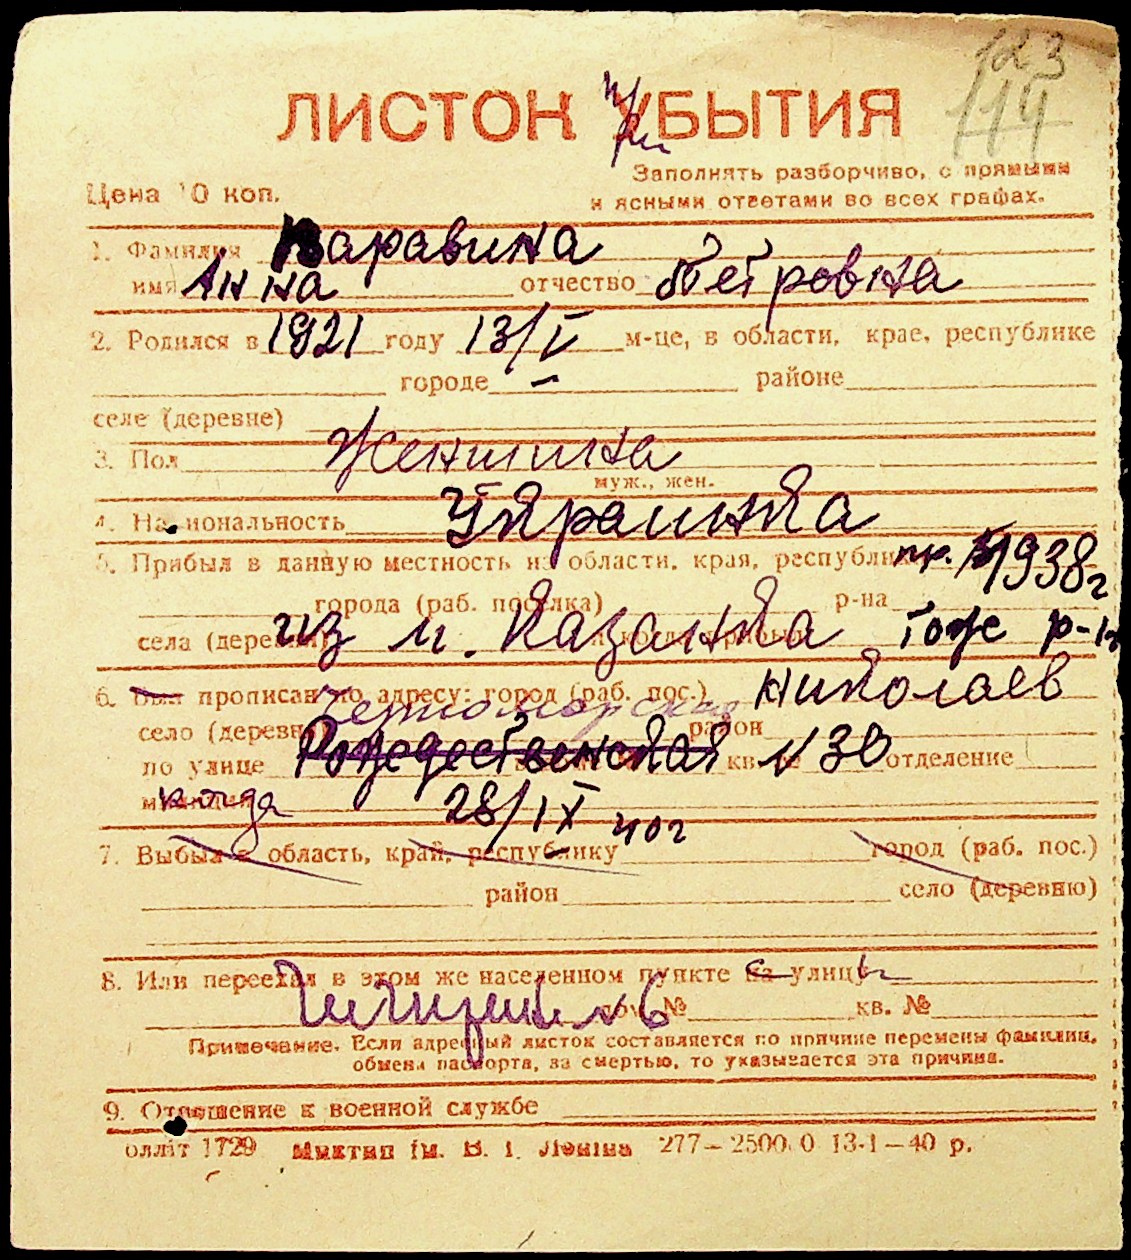 123
114
ЛИСТОК УБЫТИЯ
при
Цена 10 коп.
Заполнять разборчиво, с прямыми
и ясными ответами во всех графах.
1. Фамилия Каравина
имя Анна отчество Петровна
2. Родился в 1921 году 13/V м-це, в области, крае, республике
городе — районе
селе (деревне)
3. Пол Женщина
муж., жен.
4. Национальность Украинка
5. Прибыл в данную местность из области, края, республики пр. 1938 г
города (раб. поселка) р-на
села (деревни) из м. Казанка тоже р-н
6. Был прописан по адресу: город (раб. пос.) Николаев
село (деревня) Черноморская район
по улице Рождественская кв. № 30 отделение
милиции когда 28/IX 40 г
7. Выбыл в область, край, республику город (раб. пос.)
район село (деревню)
8. Или переехал в этом же населенном пункте на с улицы
№ 6 кв. №
Примечание. Если адресный листок составляется по причине перемены фамилии,
обмена паспорта, за смертью, то указывается эта причина.
9. Отношение к военной службе
1729 Миктип Ім. В. І. Леніна 277—2500.0 13-1—40 р.